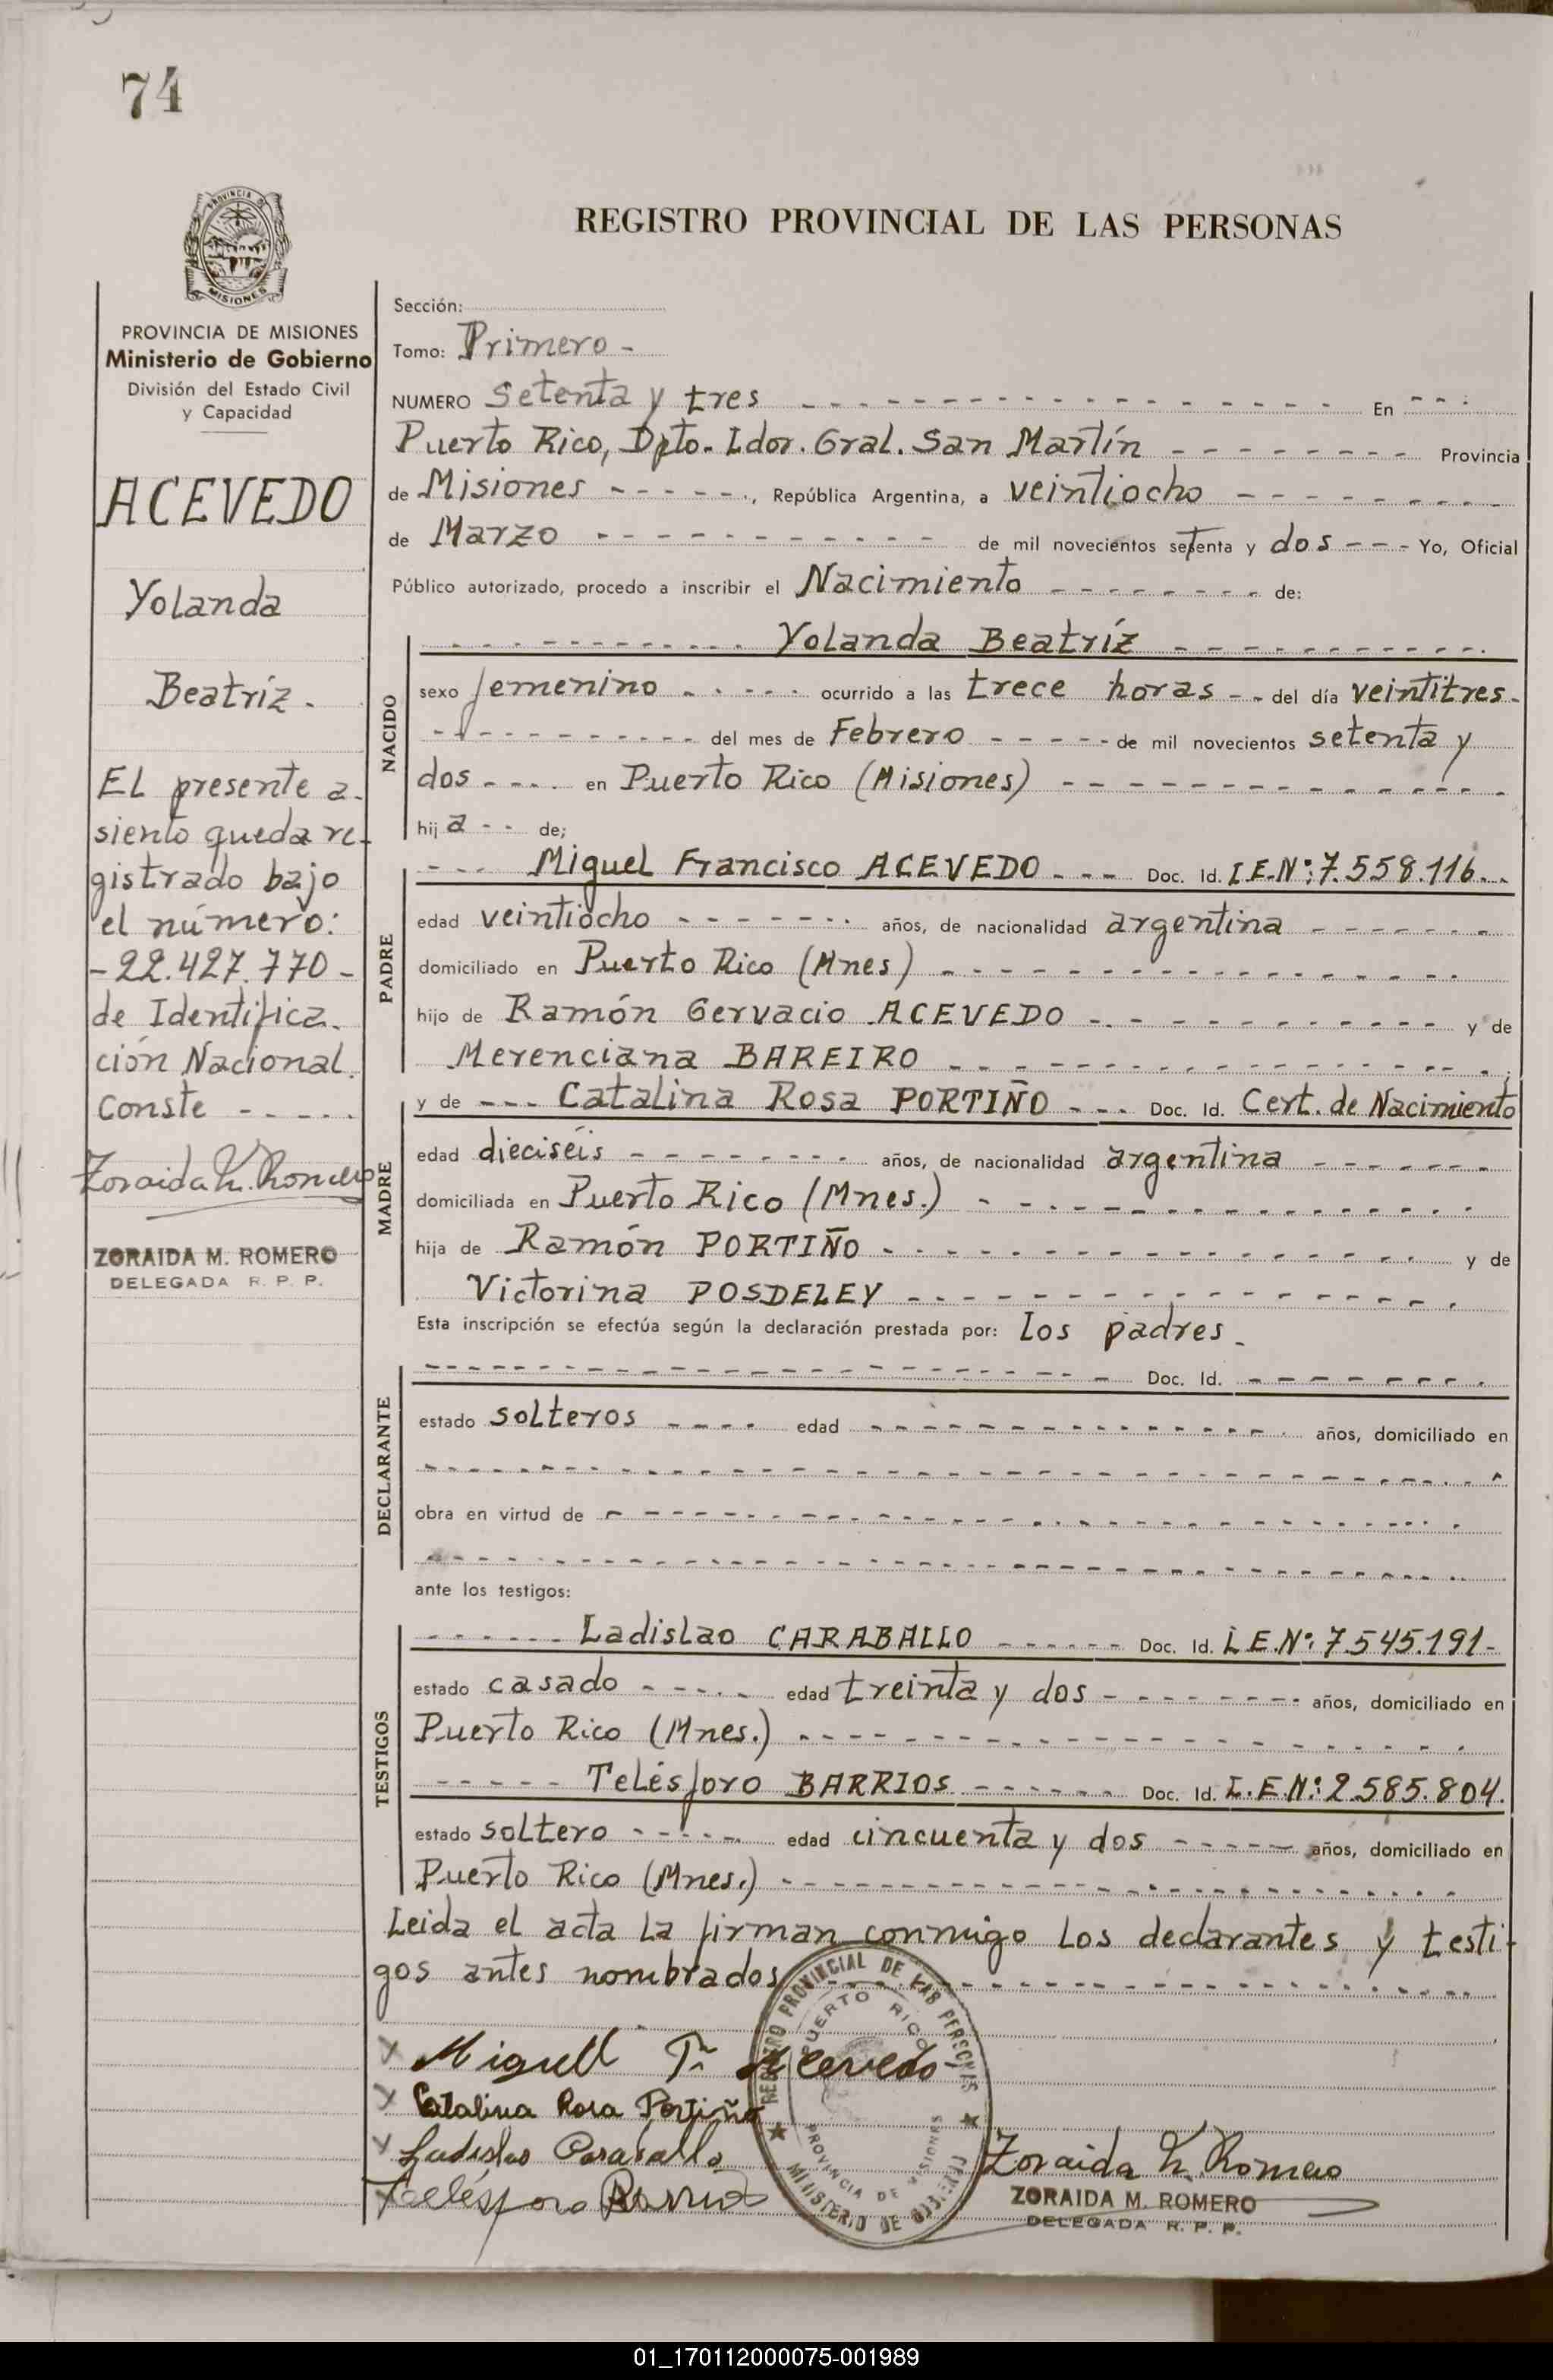 74
REGISTRO PROVINCIAL DE LAS PERSONAS
PROVINCIA
MISIONES
PROVINCIA DE MISIONES
Ministerio de Gobierno
División del Estado Civil
y Capacidad
ACEVEDO
Yolanda
Beatríz.
El presente a-
siento queda re-
gistrado bajo
el número:
-22.427.770-
de Identifica-
ción Nacional.
Conste
Zoraida M. Romero
ZORAIDA M. ROMERO
DELEGADA R. P. P.
Sección:
Tomo: Primero -
NUMERO Setenta y tres En
Puerto Rico, Dpto. Ldor. Gral. San Martín Provincia
de Misiones, República Argentina, a veintiocho
de Marzo de mil novecientos setenta y dos Yo, Oficial
Público autorizado, procedo a inscribir el Nacimiento de:
NACIDO
Yolanda Beatríz
sexo femenino ocurrido a las trece horas del día veintitres-
del mes de Febrero de mil novecientos setenta y
dos en Puerto Rico (Misiones)
hija de;
PADRE
Miguel Francisco ACEVEDO Doc. Id. L.E.Nº: 7.558.116
edad veintiocho años, de nacionalidad argentina
domiciliado en Puerto Rico (Mnes)
hijo de Ramón Gervacio ACEVEDO y de
Merenciana BAREIRO
MADRE
y de Catalina Rosa PORTIÑO Doc. Id. Cert. de Nacimiento
edad dieciséis años, de nacionalidad argentina
domiciliada en Puerto Rico (Mnes.)
hija de Ramón PORTIÑO y de
Victorina POSDELEY
Esta inscripción se efectúa según la declaración prestada por: Los padres.
DECLARANTE
Doc. Id.
estado solteros edad años, domiciliado en
obra en virtud de
ante los testigos:
TESTIGOS
Ladislao CARABALLO Doc. Id. L.E.Nº: 7.545.191-
estado casado edad treinta y dos años, domiciliado en
Puerto Rico (Mnes.)
Telésforo BARRIOS Doc. Id. L.E.Nº: 2.585.804.
estado soltero edad cincuenta y dos años, domiciliado en
Puerto Rico (Mnes.)
Leida el acta la firman conmigo los declarantes y testi-
gos antes nombrados
Miguel F. Acevedo
Catalina Rosa Portiño
Ladislao Caraballo
Telésforo Barrios
REGISTRO PROVINCIAL DE LAS PERSONAS
PUERTO RICO
PROVINCIA DE MISIONES
MINISTERIO DE GOBIERNO
Zoraida M. Romero
ZORAIDA M. ROMERO
DELEGADA R. P. P.
01_170112000075-001989